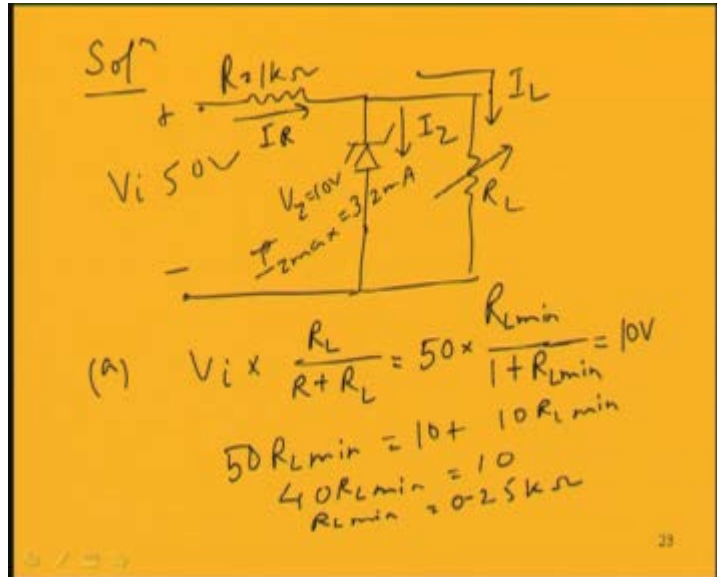 Solⁿ
R=1kΩ
+
IR
IL
Vi 50V
Iz
Vz=10V
Izmax=32mA
RL
-
(a) Vi x RL/(R+RL) = 50 x RLmin/(1+RLmin) = 10V
50RLmin = 10+ 10RLmin
40RLmin = 10
RLmin = 0.25kΩ
23